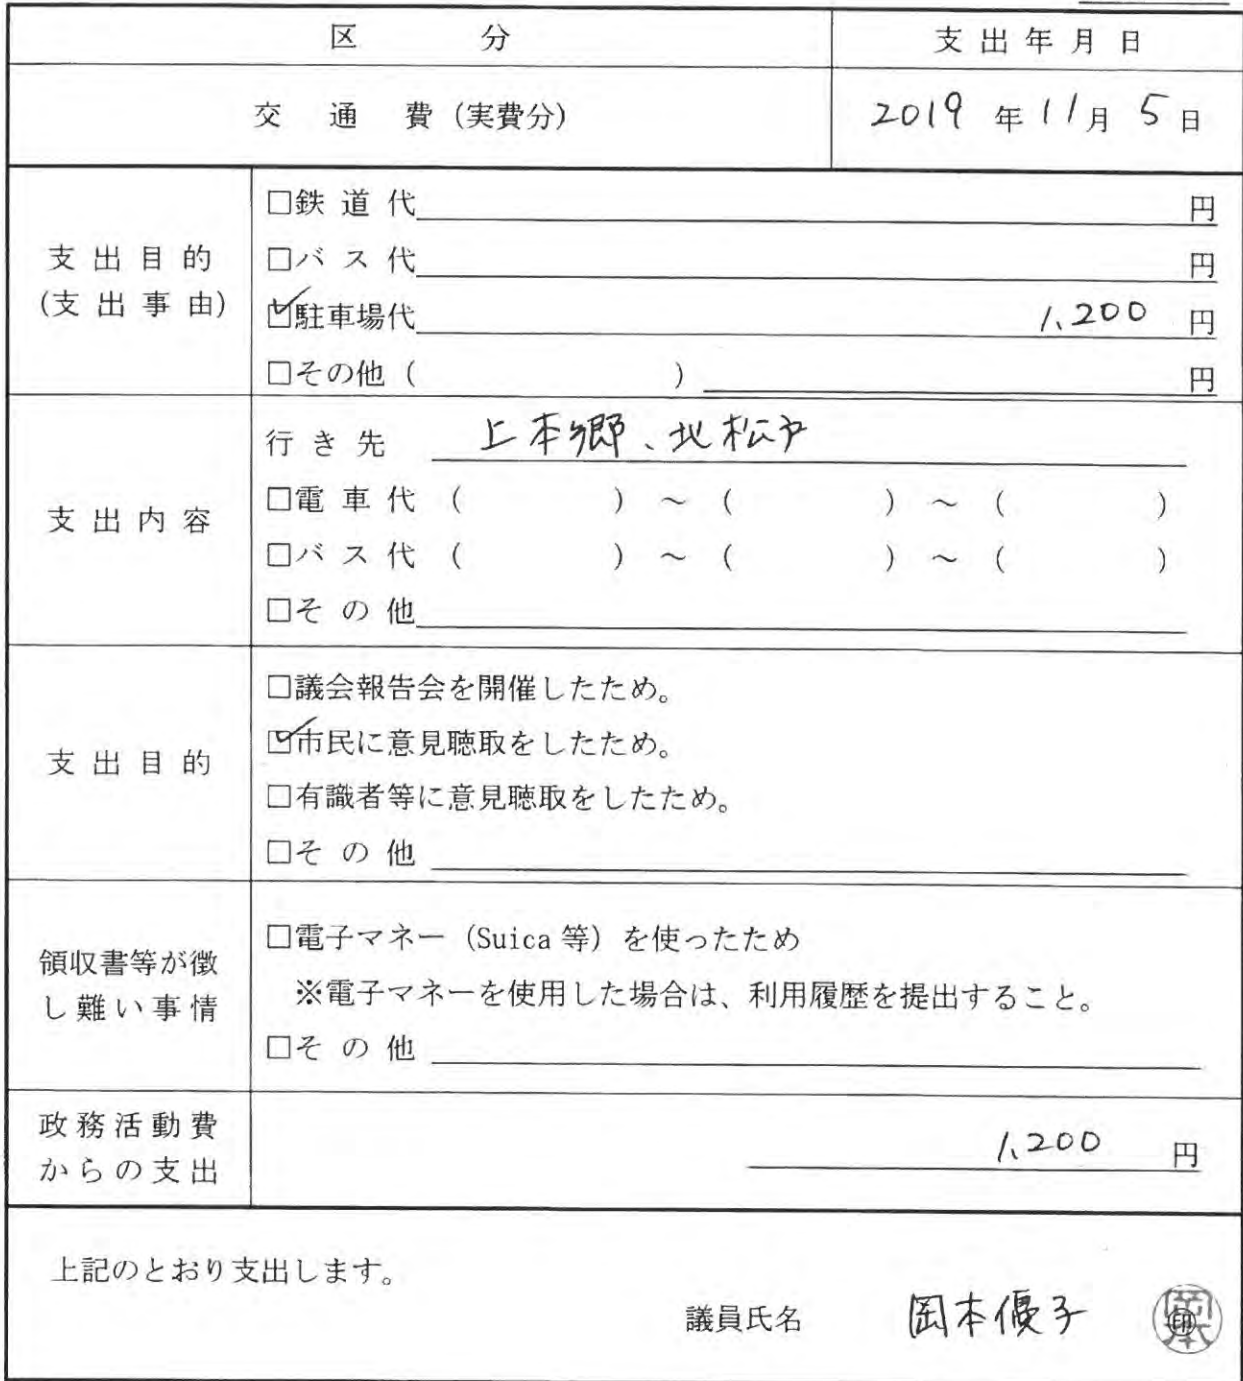 区 分 支出年月日
交 通 費 (実費分) 2019 年 11月 5日
支出目的
(支出事由)
□鉄道代 円
□バス代 円
☑駐車場代 1,200 円
□その他 ( ) 円
支出内容
行き先 上本郷、北松戸
□電車代 ( ) ～ ( ) ～ ( )
□バス代 ( ) ～ ( ) ～ ( )
□その他
支出目的
□議会報告会を開催したため。
☑市民に意見聴取をしたため。
□有識者等に意見聴取をしたため。
□その他
領収書等が徴
し難い事情
□電子マネー (Suica等) を使ったため
※電子マネーを使用した場合は、利用履歴を提出すること。
□その他
政務活動費
からの支出
1,200 円
上記のとおり支出します。
議員氏名 岡本優子 ㊞
岡本